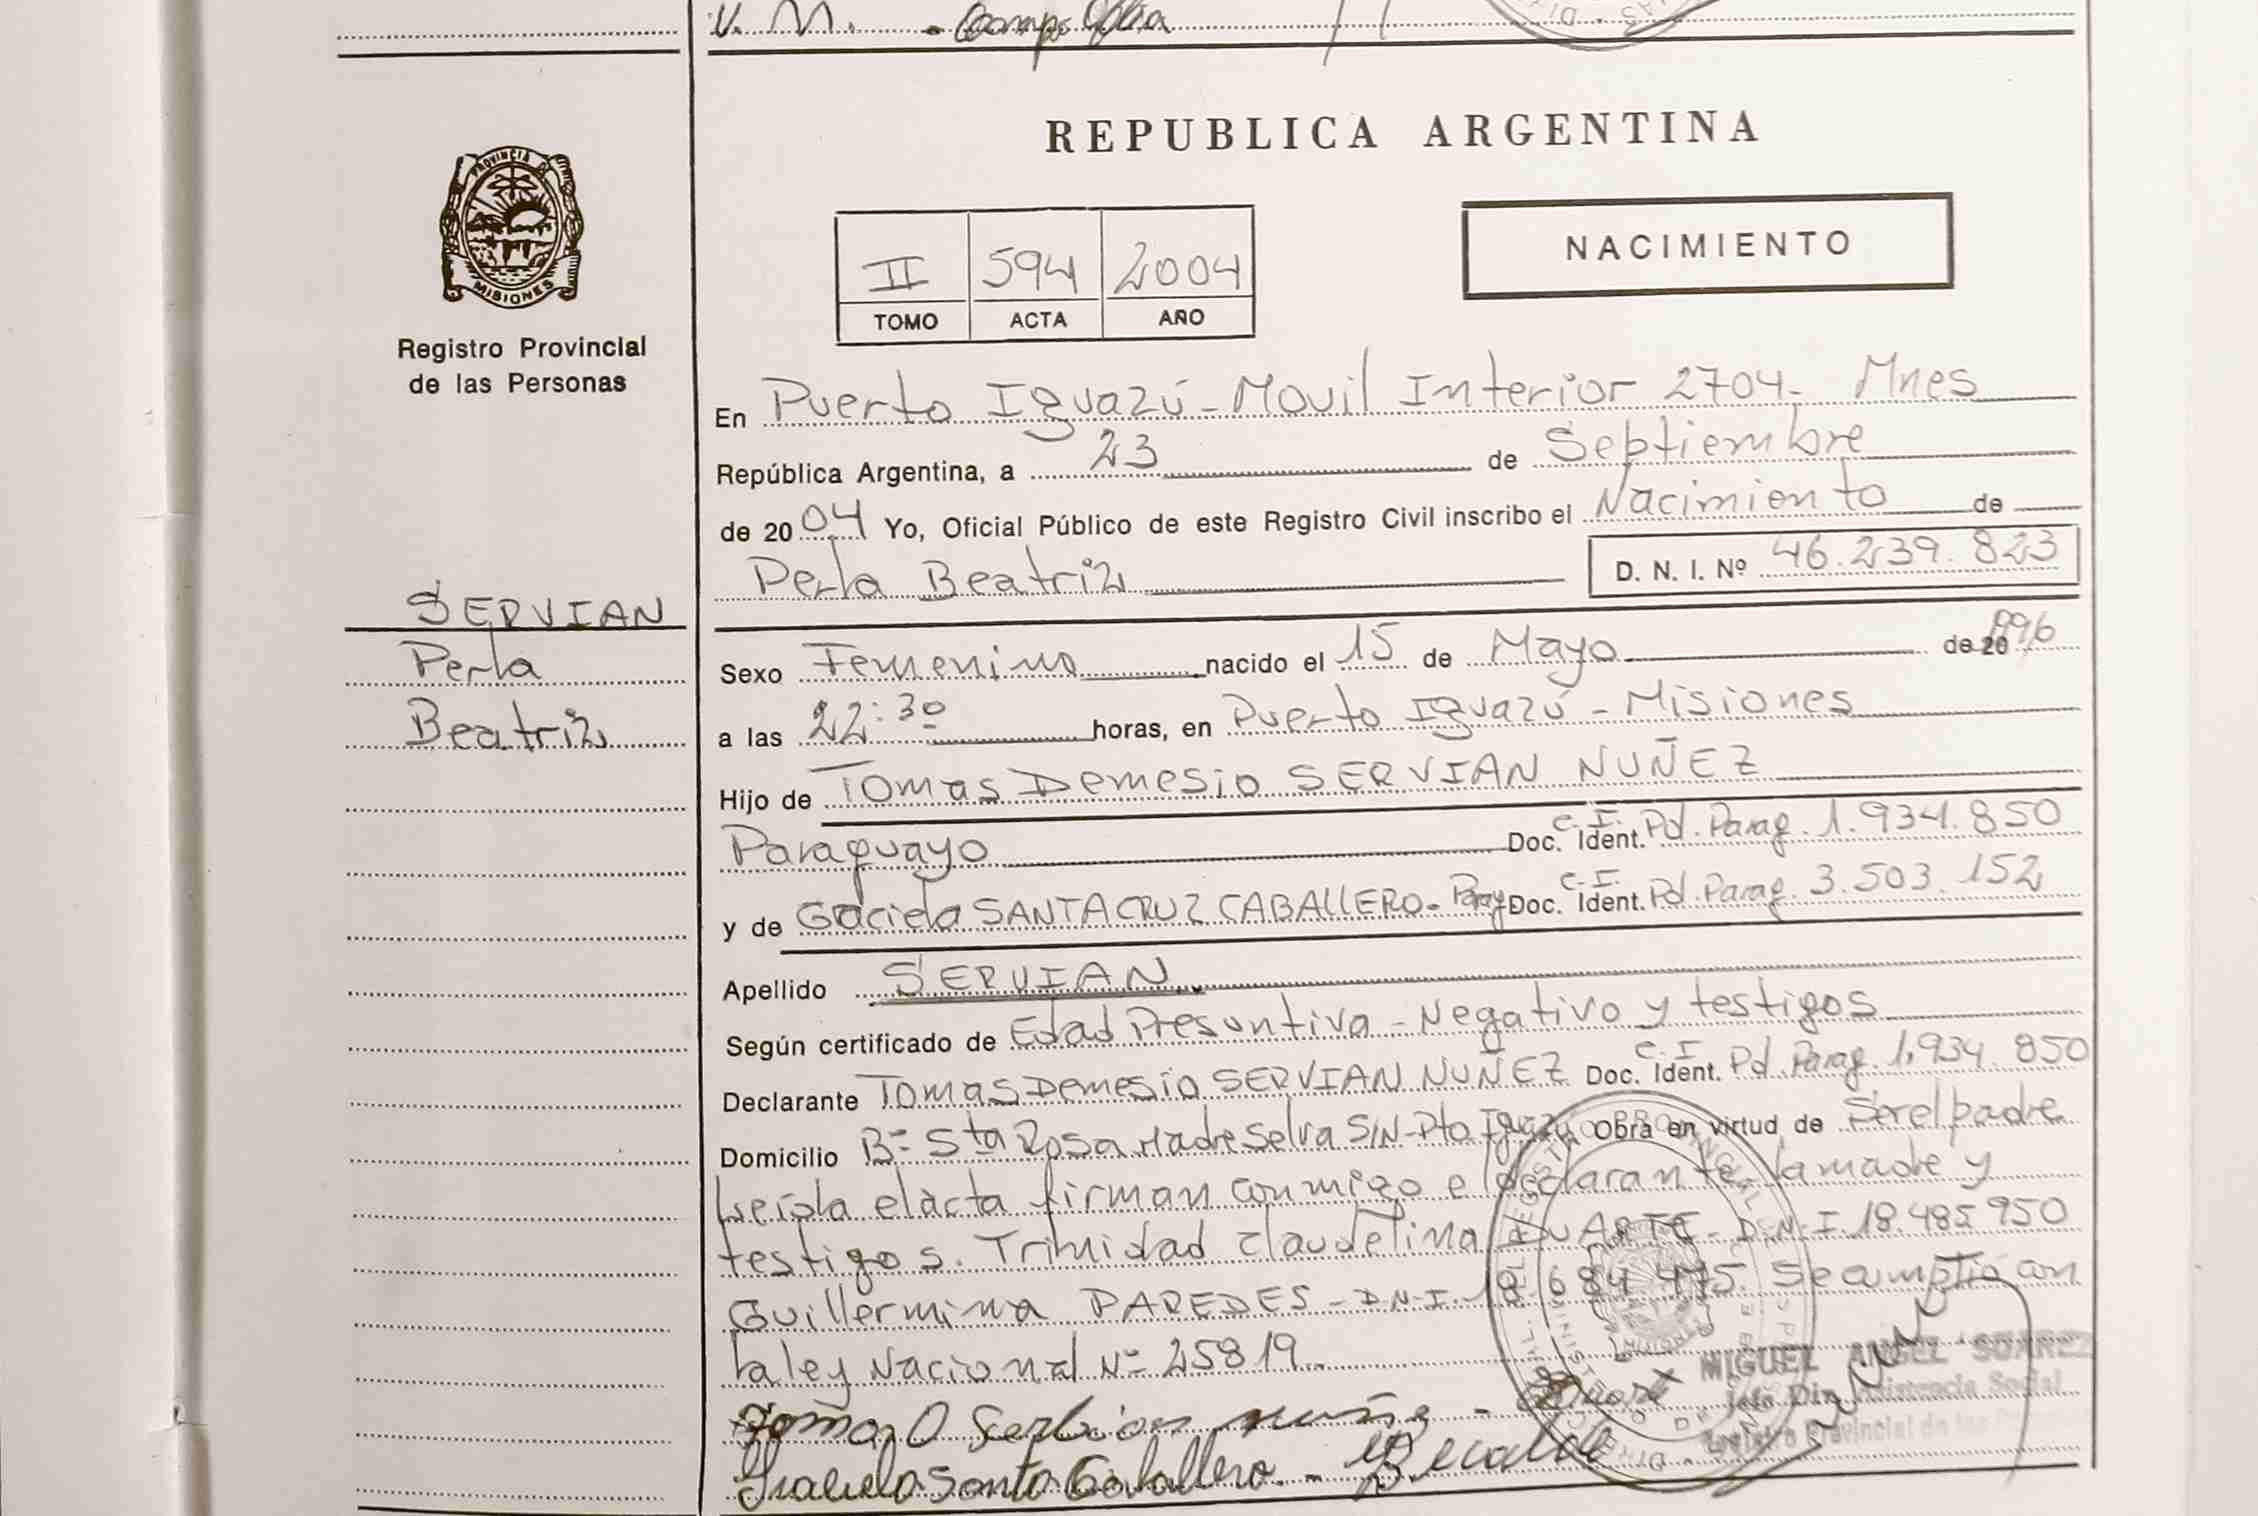 V. M. - Campo Viera
REPUBLICA ARGENTINA
PROVINCIA DE
MISIONES
Registro Provincial
de las Personas
II 594 2004
TOMO ACTA AÑO
NACIMIENTO
En Puerto Iguazú - Movil Interior 2704 - Mnes
República Argentina, a 23 de Septiembre
de 2004 Yo, Oficial Público de este Registro Civil inscribo el Nacimiento de
Perla Beatriz D. N. I. Nº 46.239.823
SERVIAN
Perla
Beatriz
Sexo Femenino nacido el 15 de Mayo de 20 1996
a las 22:30 horas, en Puerto Iguazú - Misiones
Hijo de Tomas Demesio SERVIAN NUÑEZ
Paraguayo Doc. C.I. Ident. Pd. Parag. 1.934.850
y de Graciela SANTACRUZ CABALLERO - Paray Doc. C.I. Ident. Pd. Parag. 3.503.152
Apellido SERVIAN
Según certificado de Edad Presuntiva - Negativo y testigos
Declarante Tomas Demesio SERVIAN NUÑEZ Doc. C.I Ident. Pd. Parag. 1.934.850
Domicilio Bº Sta Rosa Madre Selva S/N - Pto Iguazú Obra en virtud de Ser el padre
Leída el acta firman conmigo el declarante la madre y
testigos. Trinidad Claudelina DUARTE - D.N.I. 18.485.950
Guillermina PAREDES - D.N.I. 18.684.475. Se cumplio con
la ley Nacional Nº 25819.
Tomas D Serbian nuñez -
Graciela Santa Caballero. -
MIGUEL ANGEL SUAREZ
Jefe Dir. Asistencia Social
Registro Provincial de las Personas